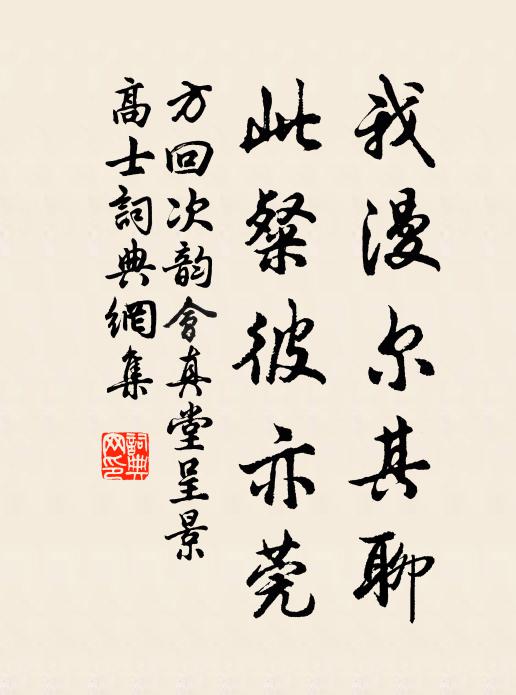 我漫尔其聊
此粲彼亦莞
方回次韵會真堂呈景
高士詞典網集
詞典網印